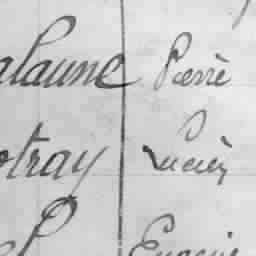 alaune Pierre
otray Lucien
Eugène